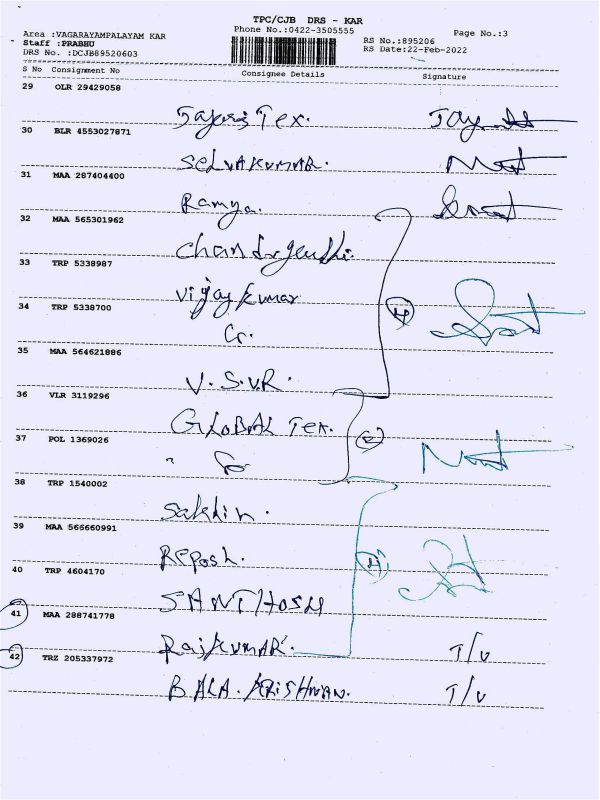 TPC/CJB DRS - KAR
Area :VAGARAYAMPALAYAM KAR Phone No.:0422-3505555 Page No.:3
Staff :PRABHU RS No.:895206
DRS No. :DCJB89520603 RS Date:22-Feb-2022
S No Consignment No Consignee Details Signature
29 OLR 29429058
Tex.
30 BLR 4553027871
SELVAKUMAR.
31 MAA 287404400
Ramya.
32 MAA 565301962
33 TRP 5338987
Vijay kumar
34 TRP 5338700
Cr.
35 MAA 564621886
V.S.V.R.
36 VLR 3119296
GLOBAL Tex.
37 POL 1369026
"
38 TRP 1540002
39 MAA 565660991
40 TRP 4604170
SANTHOSH
41 MAA 288741778
RAJKUMAR. T/V
42 TRZ 205337972
BALA.KRISHNAN. T/V